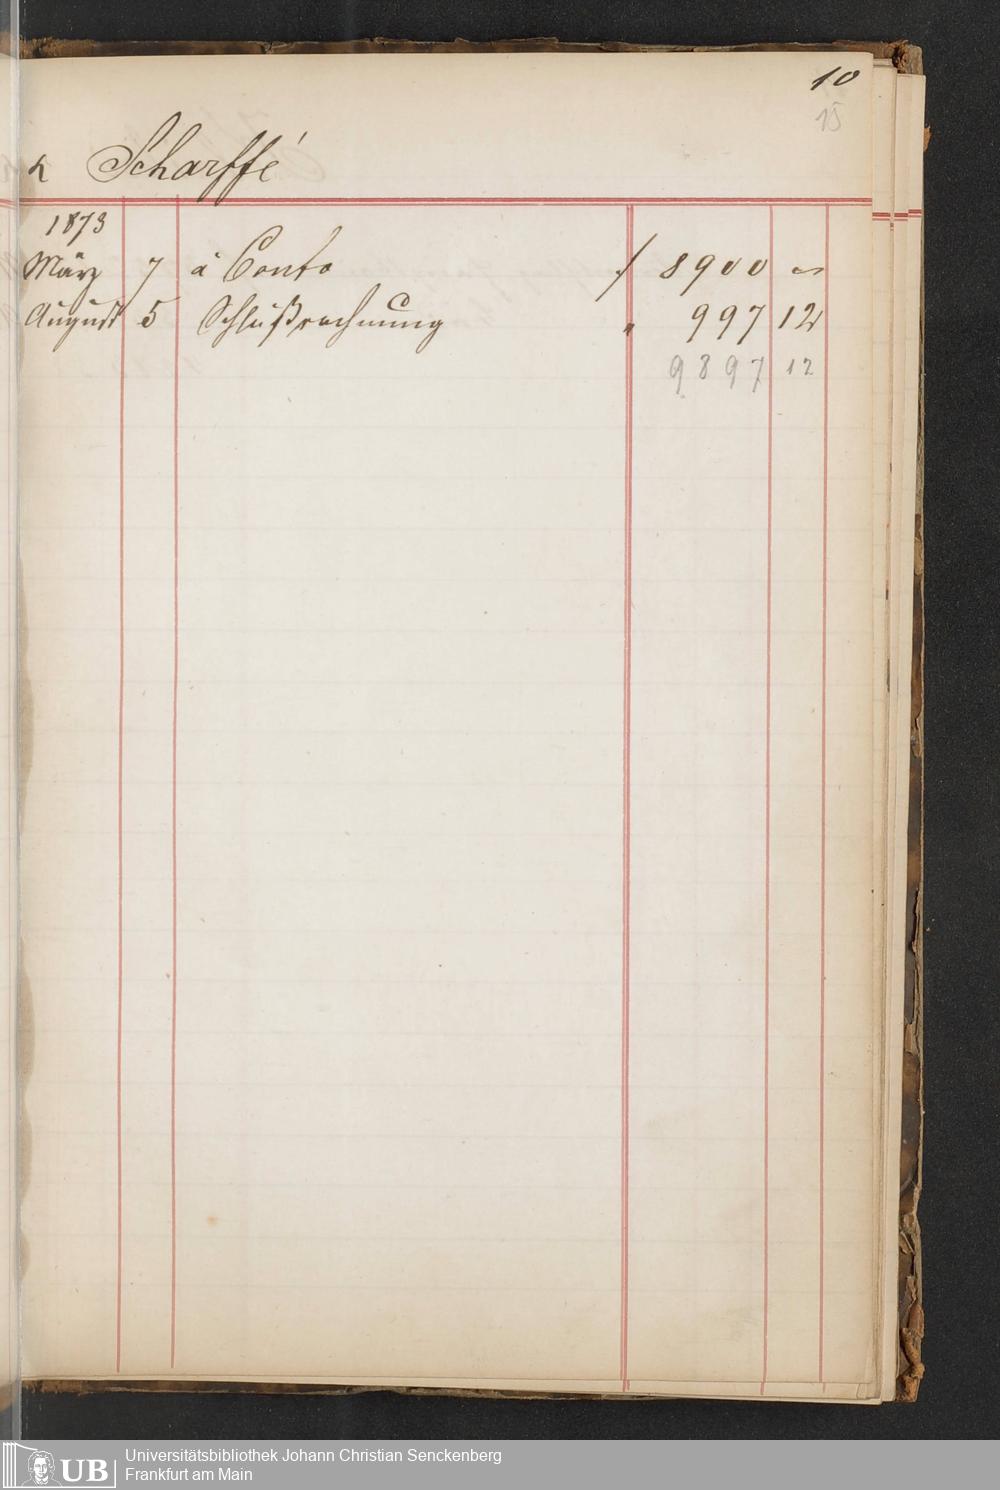 10
15
Scharffé
1873
März 7 à Conto f 8900 –
August 5 Schlußrechnung " 997 12
9897 12
UB Universitätsbibliothek Johann Christian Senckenberg
Frankfurt am Main